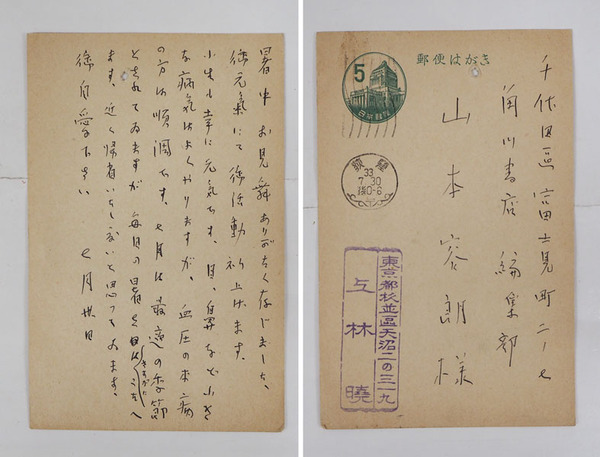 暑中お見舞ありがたく存じました、
御元氣にて御活動祈上げます。
小生も幸に元気です。目、鼻など小さ
な病気はよくやりますが、血圧の本病
の方は順調です。七月は最適の季節
とされてゐますが毎日の暑さにはこたへ
ます。近く帰省いたし度いと思つてゐます。
御自愛下さい 七月丗日
郵便はがき
5
33
7.30
後0-6
千代田區富士見町二ノ七
角川書店 編集部
山本容朗様
東京都杉並區天沼二の三一九
上林暁